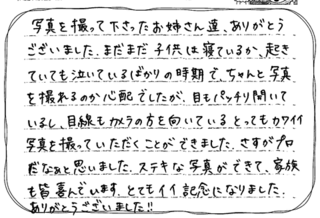 写真を撮って下さったお姉さん達、ありがとう
ございました。まだまだ子供は寝ているか、起き
ていても泣いているばかりの時期で、ちゃんと写真
を撮れるのか心配でしたが、目もパッチリ開いて
いるし、目線もカメラの方を向いているとってもカワイイ
写真を撮っていただくことができました。さすがプロ
だなぁと思いました。ステキな写真ができて、家族
も皆喜んでいます。とてもイイ記念になりました。
ありがとうございました!!